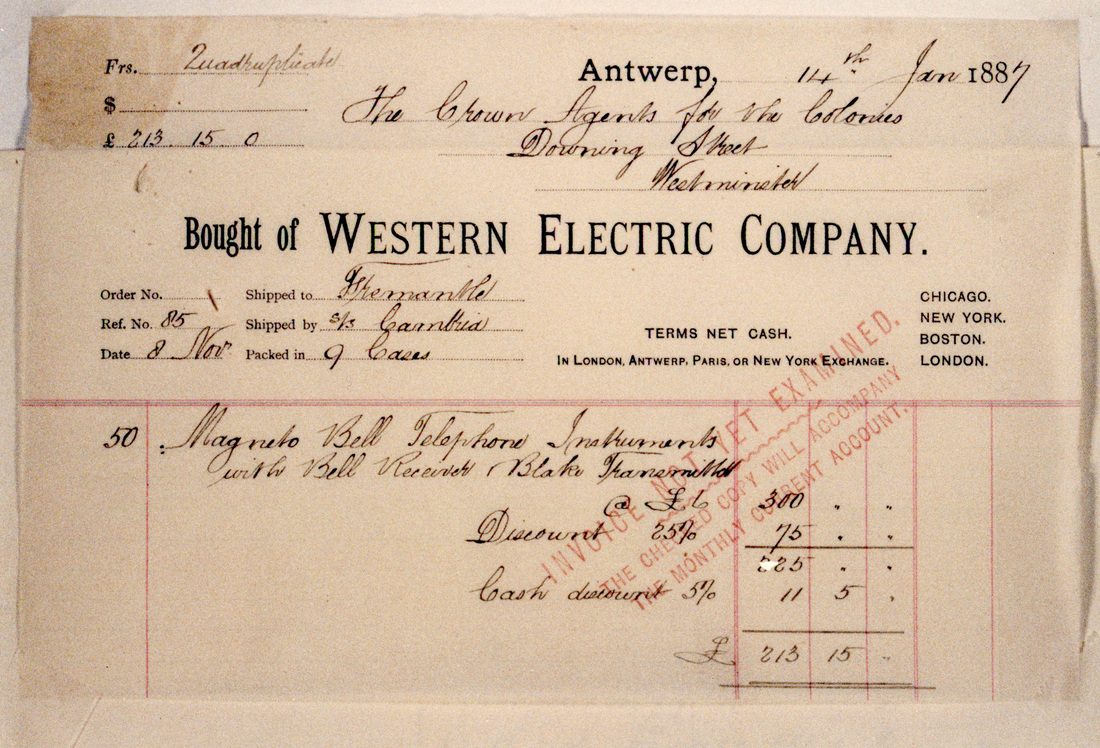 Frs. Quadruplicate
Antwerp, 14th Jan 1887
$
The Crown Agents for the Colonies
£ 213. 15. 0
Downing Street
Westminster
Bought of WESTERN ELECTRIC COMPANY.
Order No. Shipped to Fremantle
Ref. No. 85 Shipped by s/s Cambria
Date 8 Nov. Packed in 9 Cases
TERMS NET CASH.
IN LONDON, ANTWERP, PARIS, OR NEW YORK EXCHANGE.
CHICAGO.
NEW YORK.
BOSTON.
LONDON.
50 Magneto Bell Telephone Instruments
with Bell Receiver & Blake Transmitter
@ £6 300 " "
Discount 25% 75 " "
225 " "
Cash discount 5% 11 5 "
£ 213 15 "
INVOICE NOT YET EXAMINED.
THE CHECKED COPY WILL ACCOMPANY
THE MONTHLY CURRENT ACCOUNT.